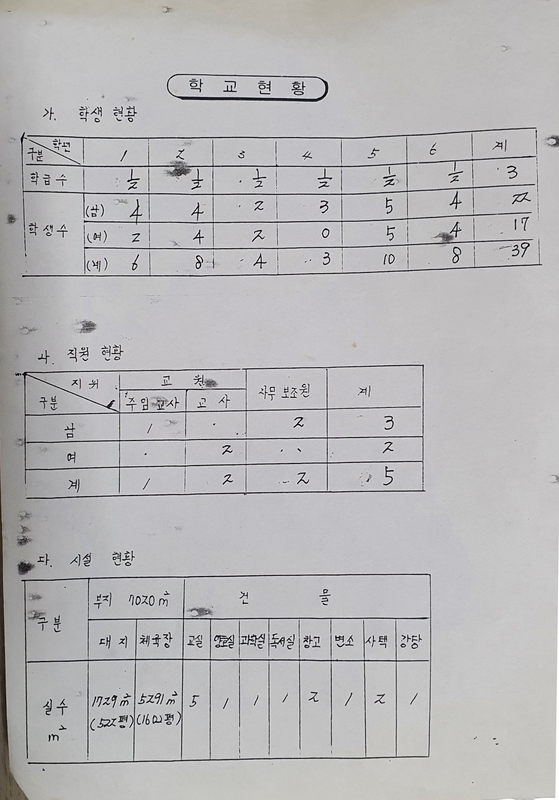 학교현황
가. 학생 현황
구분 학년 1 2 3 4 5 6 계
학급수 1/2 1/2 1/2 1/2 1/2 1/2 3
학생수 (남) 4 4 2 3 5 4 22
(여) 2 4 2 0 5 4 17
(계) 6 8 4 3 10 8 39
나. 직원 현황
구분 지위 교원 사무 보조원 계
주임교사 교사
남 1 · 2 3
여 · 2 ·· 2
계 1 2 2 5
다. 시설 현황
구분 부지 7020㎡ 건물
대지 체육장 교실 과학실 독서실 창고 변소 사택 강당
실수 ㎡ 1729㎡ 5291㎡ 5 1 1 1 2 1 2 1
(522평) (1602평)